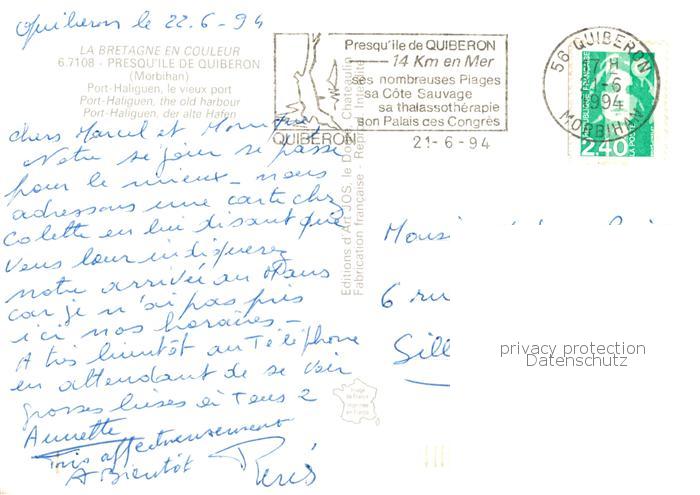 Quiberon le 22.6-94
LA BRETAGNE EN COULEUR
6.7108 - PRESQU'ILE DE QUIBERON
(Morbihan)
Port-Haliguen, le vieux port
Port-Haliguen, the old harbour
Port-Haliguen, der alte Hafen
Presqu'ile de QUIBERON
14 Km en Mer
ses nombreuses Plages
sa Côte Sauvage
sa thalassothérapie
son Palais des Congrès
QUIBERON
21-6-94
56 QUIBERON
17 H
1-6
1994
MORBIHAN
2,40
LA POSTE
chers Marcel et Monique
Notre séjour se passe
pour le mieux - nous
adressons une carte chez
Colette en lui disant que
vous leur indiquerez
notre arrivée au Mans
car je n'ai pas pris
ici nos horaires -
A très bientôt au Téléphone
en attendant de se voir
grosses bises à Tous 2
Annette
Très affectueusement
A Bientôt
Editions d'Art JOS, le Doaré, Chateaulin
Fabrication française - Reproduction Interdite
Image de France
Monsi
6 ru
Sill
privacy protection
Datenschutz